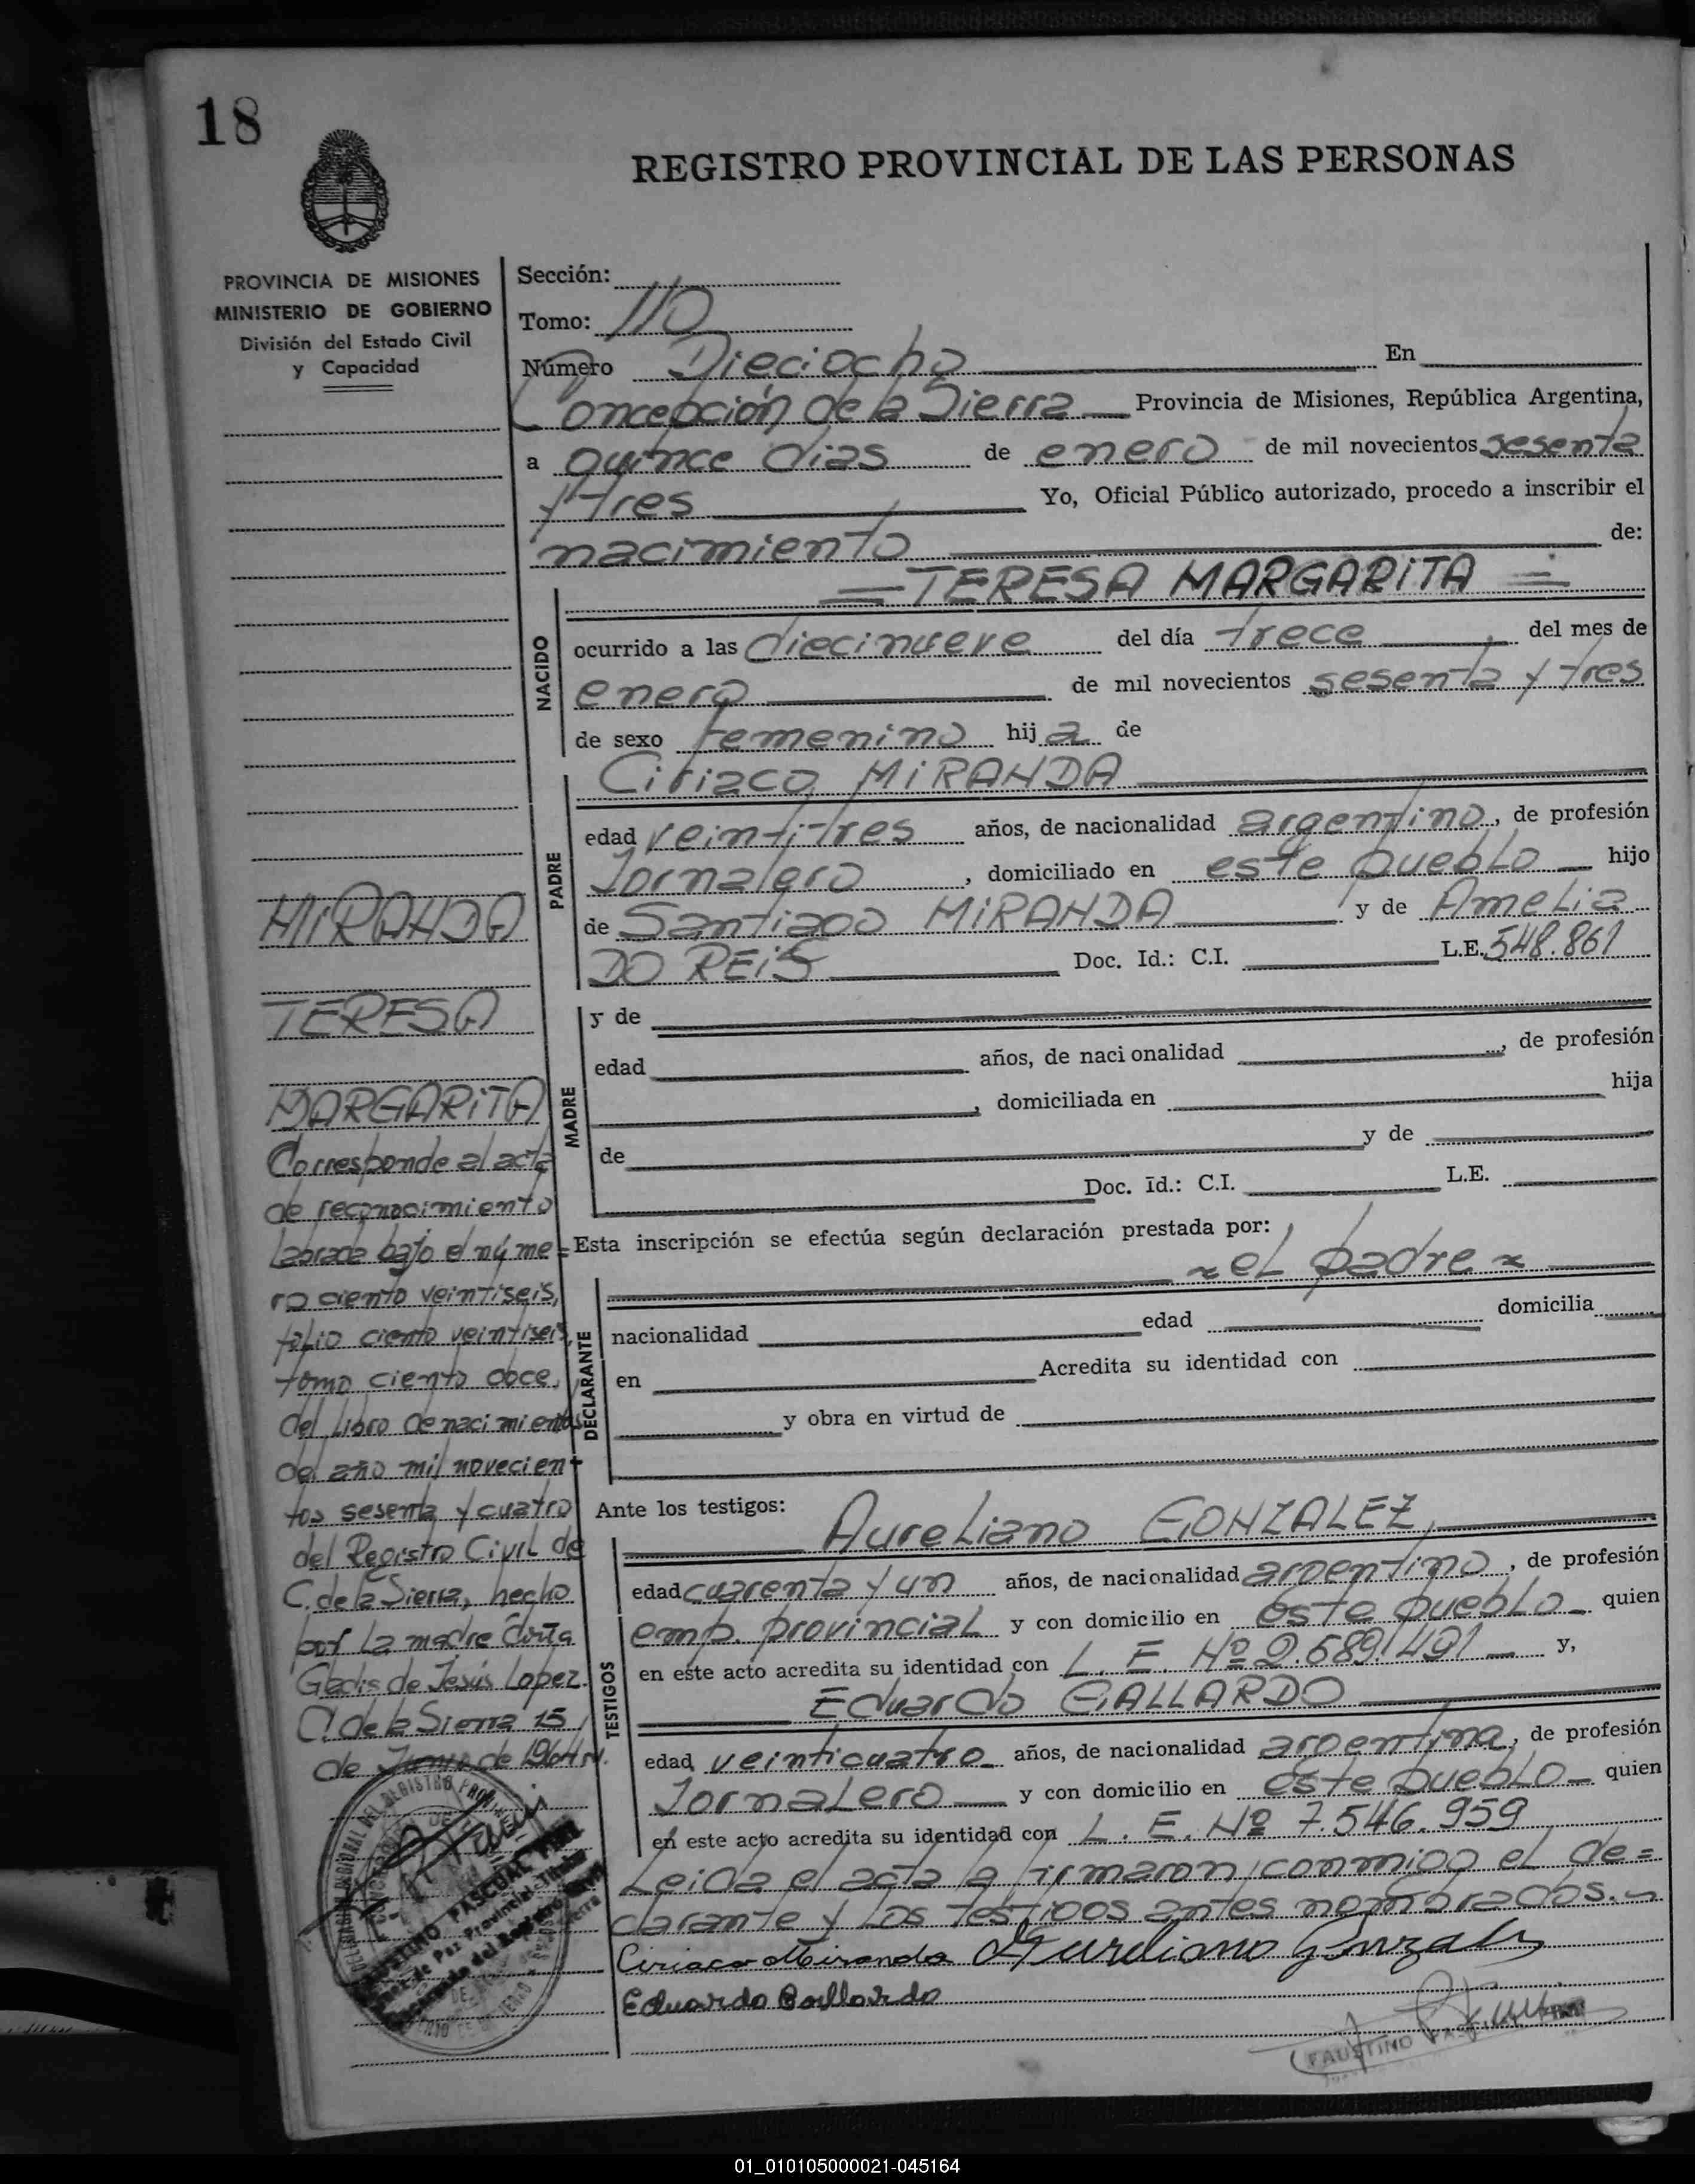 18
REGISTRO PROVINCIAL DE LAS PERSONAS
PROVINCIA DE MISIONES
MINISTERIO DE GOBIERNO
División del Estado Civil
y Capacidad
MIRANDA
TERESA
MARGARITA
Corresponde al acta
de reconocimiento
labrada bajo el núme=
ro ciento veintiseis,
folio ciento veintiseis,
tomo ciento doce,
del libro de nacimientos
del año mil novecien-
tos sesenta y cuatro
del Registro Civil de
C. de la Sierra, hecho
por la madre doña
Gladis de Jesús Lopez.
C. de la Sierra 15
de de 1964
Sección:
Tomo: 110
Número Dieciocho En
Concepción de la Sierra Provincia de Misiones, República Argentina,
a quince dias de enero de mil novecientos sesenta
y tres Yo, Oficial Público autorizado, procedo a inscribir el
nacimiento de:
= TERESA MARGARITA =
NACIDO
ocurrido a las diecinueve del día trece del mes de
enero de mil novecientos sesenta y tres
de sexo femenino hija de
Ciriaco MIRANDA
PADRE
edad veintitres años, de nacionalidad argentino, de profesión
Jornalero, domiciliado en este pueblo hijo
de Santiago MIRANDA y de Amelia
DO REIS Doc. Id.: C.I. L.E. 548.861
MADRE
y de
edad años, de nacionalidad , de profesión
, domiciliada en hija
de y de
Doc. Id.: C.I. L.E.
Esta inscripción se efectúa según declaración prestada por:
el padre
DECLARANTE
nacionalidad edad domicilia
en Acredita su identidad con
y obra en virtud de
Ante los testigos:
Aureliano GONZALEZ,
TESTIGOS
edad cuarenta y un años, de nacionalidad argentino, de profesión
emp. provincial y con domicilio en este pueblo quien
en este acto acredita su identidad con L. E. Nº 2.689.491 y,
Eduardo GALLARDO
edad veinticuatro años, de nacionalidad argentina, de profesión
Jornalero y con domicilio en este pueblo quien
en este acto acredita su identidad con L. E. Nº 7.546.959
Leida el acta la firmaron conmigo el de=
clarante y los testigos antes nombrados.
Ciriaco Miranda Aureliano Gonzalez
Eduardo Gallardo
FAUSTINO PASCUAL
01_010105000021-045164